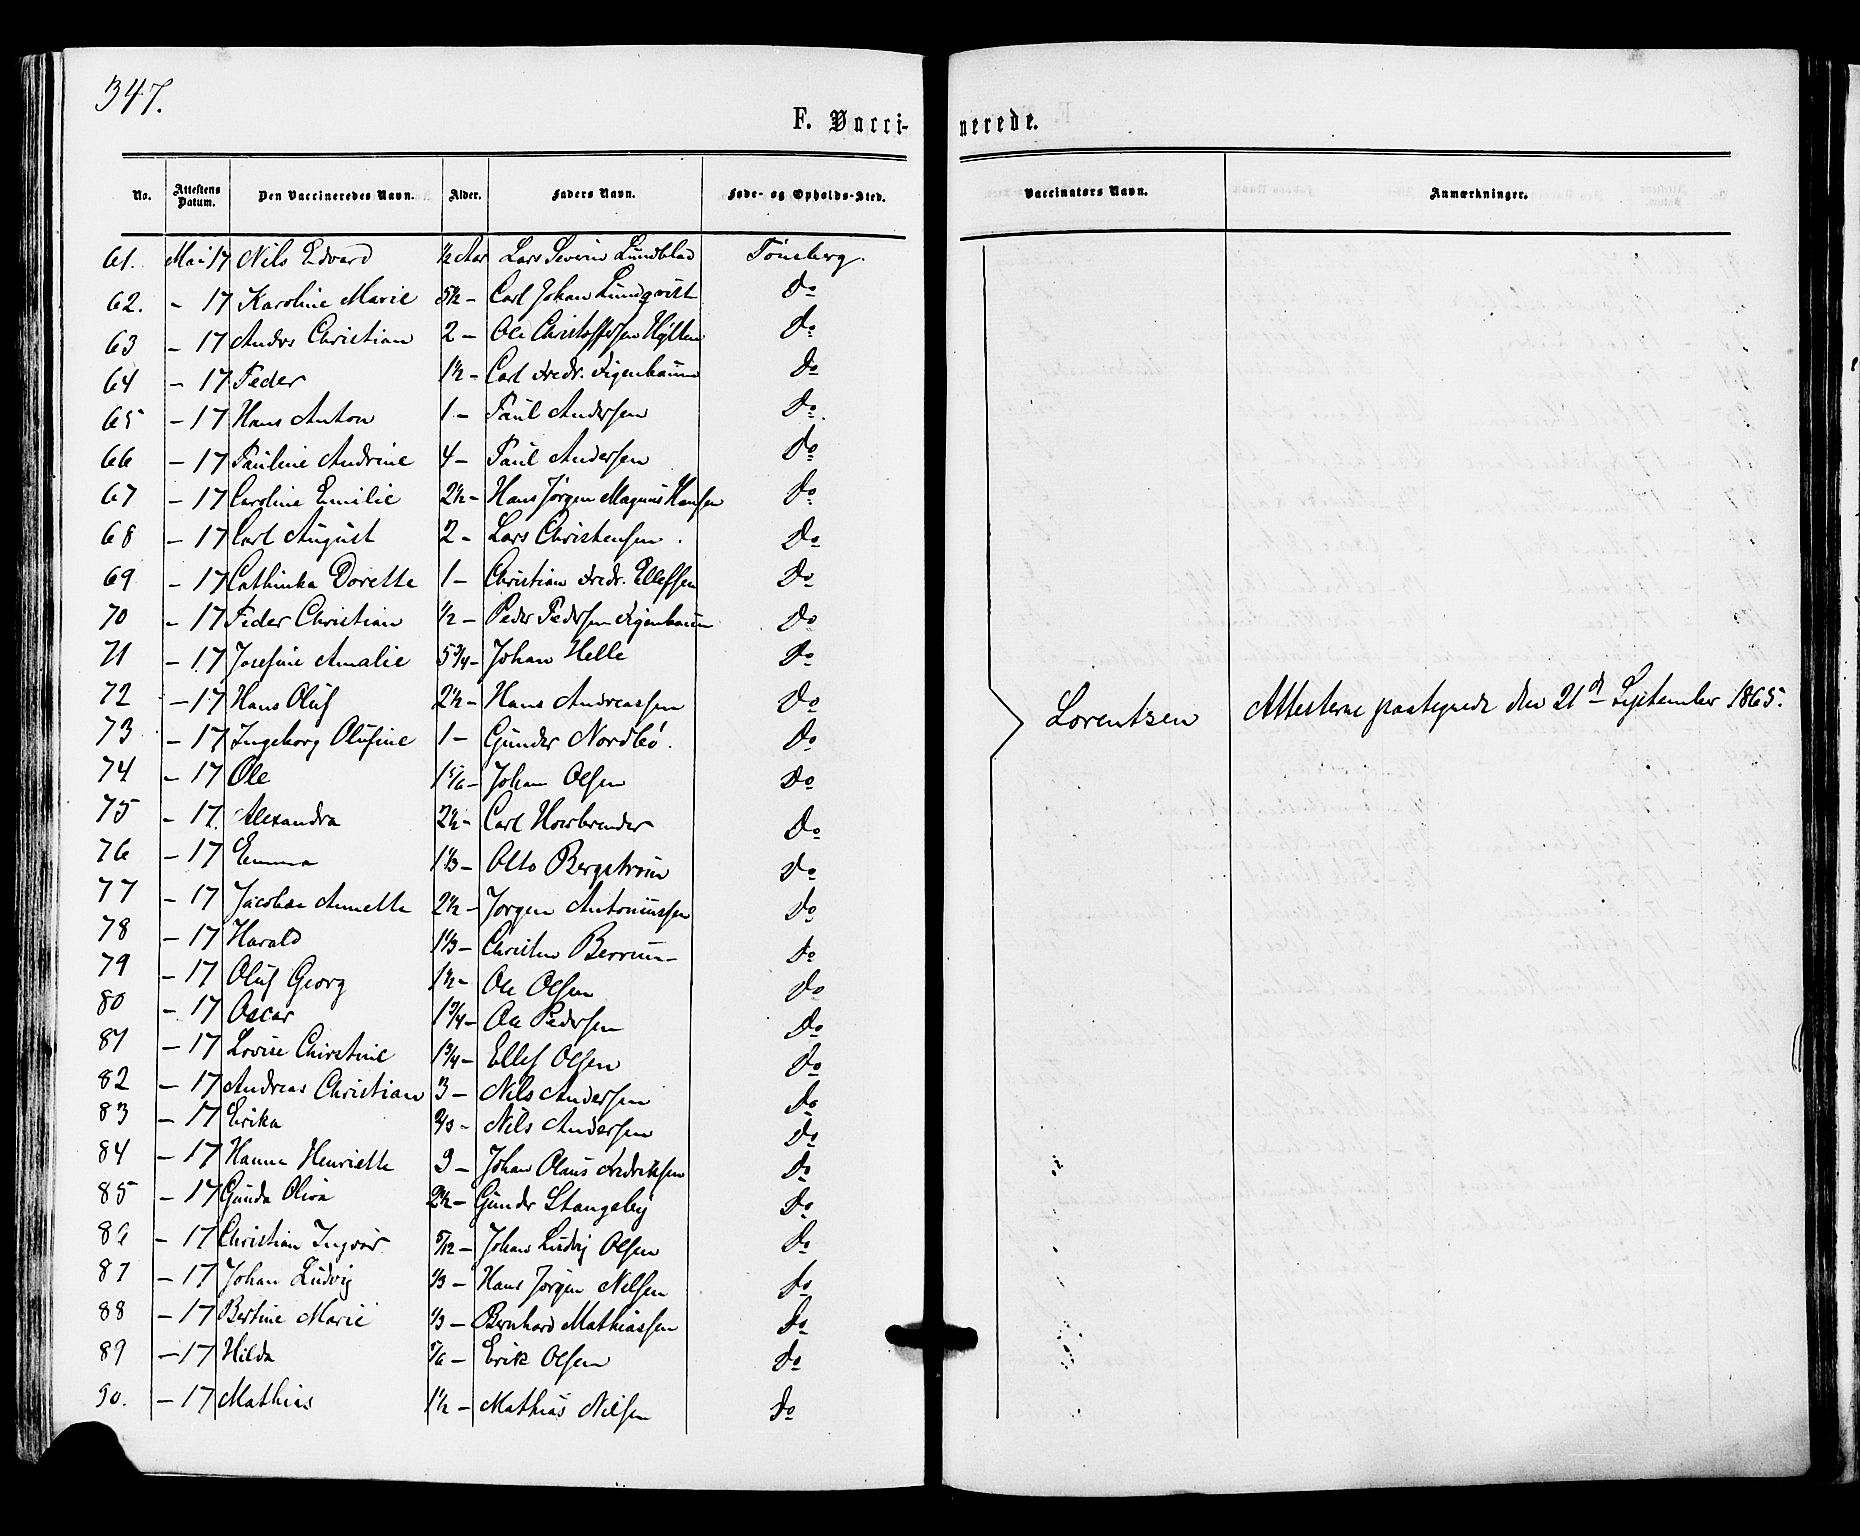 347.
F. Vaccinerede.
No. Attestens Datum. Den Vaccineredes Navn. Alder. Faders Navn. Føde- og Opholds-Sted. Vaccinators Navn. Anmærkninger.
61. Mai 17 Nils Edvard ½ Aar Lars Severin Lundblad Tönsberg.
62. - 17 Karoline Marie 5½ - Carl Johan Lundqvist Do
63 - 17 Andrs Christian 2 - Ole Christoffersen Hylten Do
64 - 17 Peder 1½ - Carl Fredr. Figenbaum Do
65 - 17 Hans Anton 1 - Paul Andersen Do
66 - 17 Pauline Andrine 4 - Paul Andersen Do
67 - 17 Caroline Emilie 2½ - Hans Jørgen Magnus Hansen Do
68 - 17 Carl August 2 - Lars Christensen Do
69 - 17 Cathinka Dorette 1 - Christian Fredr. Ellefsen Do
70 - 17 Peder Christian ½ - Peder Pedersen Figenbaum Do
71 - 17 Josefine Amalie 5¾ - Johan Helle Do
72 - 17 Hans Oluf 2½ - Hans Andreassen Do
73 - 17 Ingeborg Olufine 1 - Gunder Nordbö. Do
Lorentzen Attesterne paategnede den 21d September 1865.
74 - 17 Ole 1 5/6 - Johan Olsen Do
75 - 17. Alexandra 2½ - Carl Do
76 - 17 Emma 1⅓ - Otto Bergström Do
77 - 17 Jacobine Annette 2½ - Jørgen Antoniussen Do
78 - 17 Harald 1⅓ - Christen Berrum Do
79 - 17 Oluf Georg 1½ - Ole Olsen Do
80 - 17 Oscar 1¾ - Ole Pedersen Do
81 - 17 Lovise Christine 1¾ - Ellef Olsen Do
82 - 17 Andreas Christian 3 - Nils Andersen Do
83 - 17 Erika ⅔ - Nils Andersen Do
84 - 17 Hanna Henriette 3 - Johan Olaus Fredriksen Do
85 - 17 Gunda Oliva 2½ - Gundr Stangeby Do
86 - 17 Christian Ingvar 5/12 - Johan Ludvig Olsen Do
87 - 17 Johan Ludvig ⅓ - Hans Jørgen Nilsen Do
88 - 17 Bertine Marie ⅓ - Bernhard Mathiassen Do
89 - 17 Hilda 5/6 - Erik Olsen Do
90. - 17 Mathias 1½ - Mathias Nilsen Do